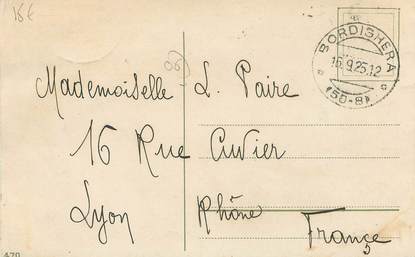 15€
BORDIGHERA
16.9.25.12
(50-8)
06
Mademoiselle L. Paire
16 Rue Cuvier
Lyon
Rhône
France
5
470